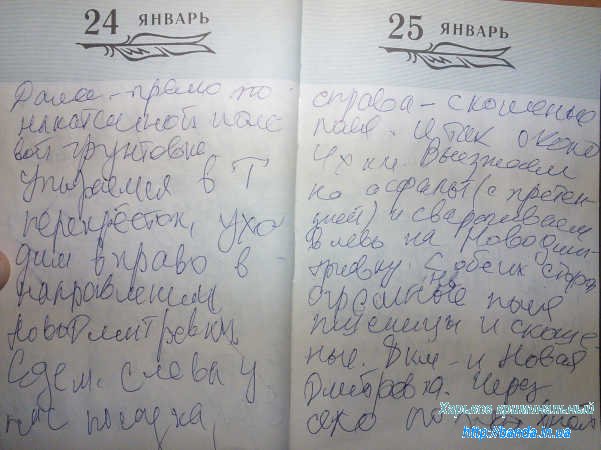 24 ЯНВАРЬ
Далее - прямо по
накатанной поле
вой грунтовке
Упираемся в Т
перекрёсток, ухо
дим вправо в
направлении
Новодмитровки
Едем. слева у
нас посадка,
25 ЯНВАРЬ
справа - скошеные
поля. И так около
4х км. Выезжаем
на асфальт (с претен
зией) и сворачиваем
влево на Новодми
тровку. С обеих сторон
огромные поля
пшеницы и скоше
ные. 2км - и Новая
Дмитровка. Через
село по
Харьков криминальный
http://banda.in.ua